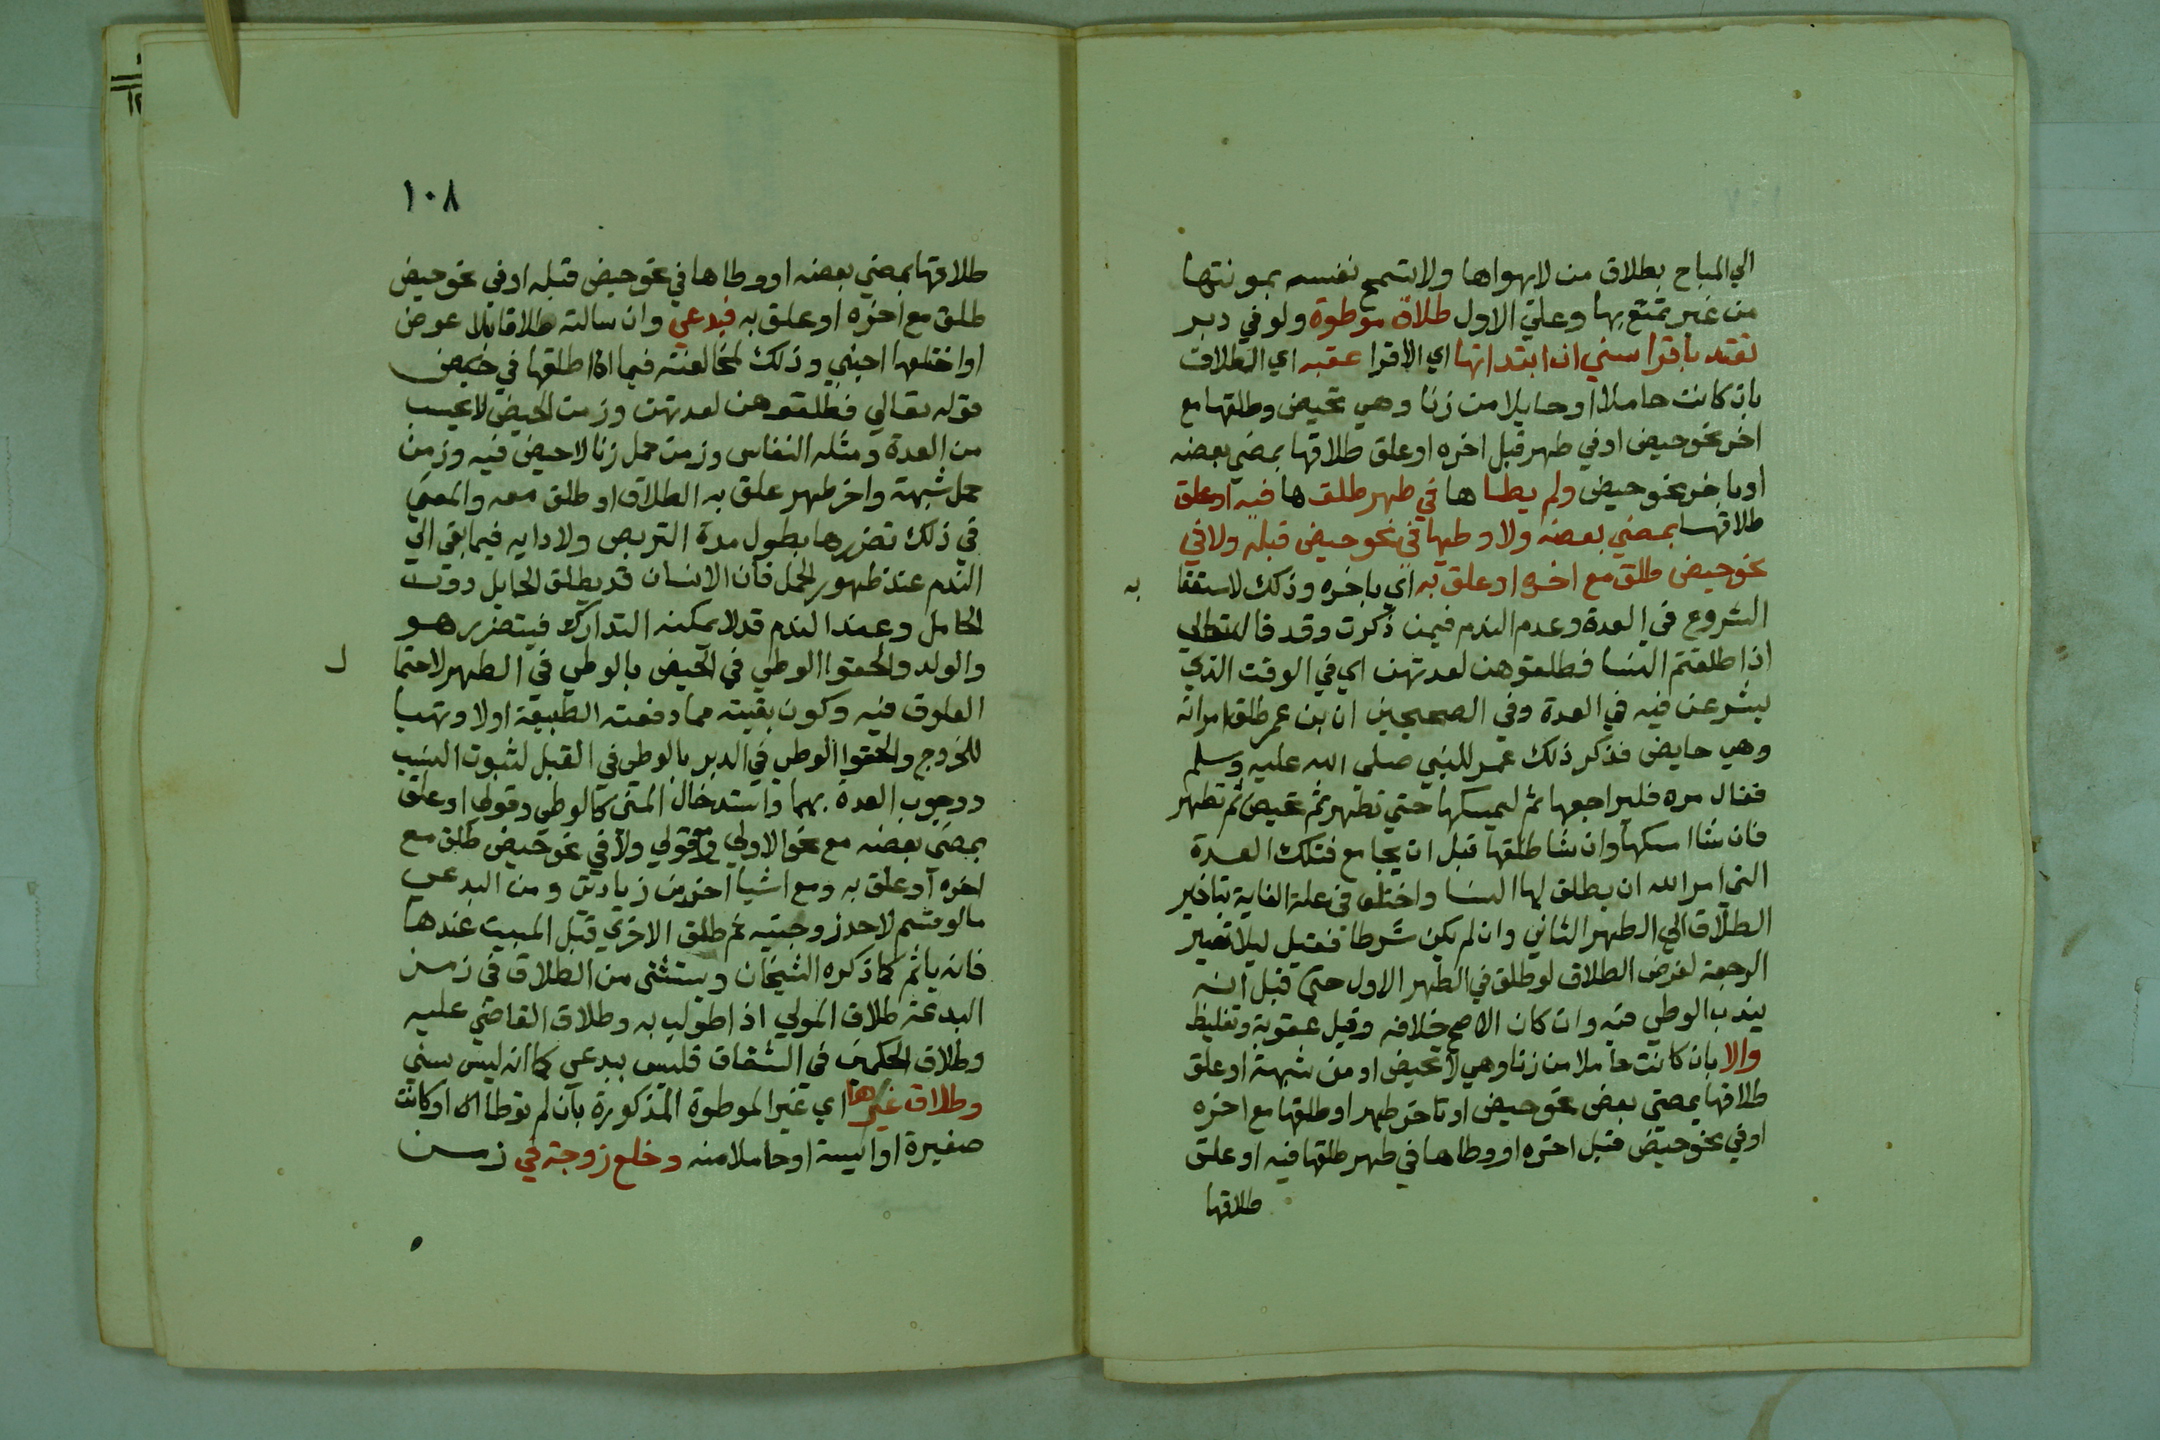 الي المباح بطلاق من لا يهواها ولا تسمح نفسه بمونتها
من غير تمتع بها وعلي الاول طلاق موطوة ولو في دبر
تعتد باقرا سني ان ابتداتها اي الاقرا عقبه اي الطلاق
بان كانت حاملا او حايلا من زنا وهي تحيض وطلقها مع
اخر نحو حيض او في طهر قبل اخره او علق طلاقها بمضي بعضه
او باخر نحو حيض ولم يطاها في طهر طلقها فيه او علق
طلاقها بمضي بعضه ولا وطيها في نحو حيض قبله ولا في
نحو حيض طلق مع اخره او علق به اي باخره وذلك لاستعقا
به
الشروع في العدة وعدم الندم فيمن ذكرت وقد قال تعالي
اذا طلقتم النسا فطلقوهن لعدتهن اي في الوقت الذي
يشرعن فيه في العدة وفي الصحيحين ان بن عمر طلق امراته
وهي حايض فذكر ذلك عمر للنبي صلى الله عليه وسلم
فقال مره فليراجعها ثم ليمسكها حتي تطهر ثم تحيض ثم تطهر
فان شا امسكها وان شا طلقها قبل ان يجامع فتلك العدة
التي امر الله ان يطلق لها النسا واختلف في علة الغاية بتاخير
الطلاق الي الطهر الثاني وان لم يكن شرطا فقيل ليلا تصير
الرجعة لغرض الطلاق لو طلق في الطهر الاول حتي قيل انه
يندب الوطي فيه وان كان الاصح خلافه وقيل عقوبة وتغليظ
والا بان كانت حاملا من زنا وهي لا تحيض او من شبهة او علق
طلاقها بمضي بعض نحو حيض او باخر طهر او طلقها مع اخره
او في نحو حيض قبل اخره او وطاها في طهر طلقها فيه او علق
طلاقها
١٠٨
طلاقها بمضي بعضه او وطاها في نحو حيض قبله او في نحو حيض
طلق مع اخره او علق به فبدعي وان سالته طلاقا بلا عوض
او اختلعها اجنبي وذلك لمخالفته فيما اذا طلقها في حيض
قوله تعالي فطلقوهن لعدتهن وزمن الحيض لا يحسب
من العدة ومثله النفاس وزمن حمل زنا لا حيض فيه وزمن
حمل شبهة واخر طهر علق به الطلاق او طلق معه والمعني
في ذلك تضررها بطول مدة التربص ولادايه فيما بقي الي
الندم عند ظهور الحمل فان الانسان قد يطلق الحايل دون
الحامل وعند الندم قد لا يمكنه التدارك فيتضرر هو
والولد والحقوا الوطي في الحيض بالوطي في الطهر لاحتما
ل
العلوق فيه وكون بقيته مما دفعته الطبيعة اولا وتهيا
للخروج والحقوا الوطي في الدبر بالوطي في القبل لثبوت النسب
ووجوب العدة بهما واستدخال المني كالوطي وقولي او علق
بمضي بعضه مع نحو الاولي وقولي ولا في نحو حيض طلق مع
اخره او علق به ومع اشيا اخر من زيادتي ومن البدعي
ما لو قسم لاحد زوجتيه ثم طلق الاخري قبل المبيت عندها
فانه ياثم كما ذكره الشيخان ويستثني من الطلاق في زمن
البدعة طلاق المولي اذا طولب به وطلاق القاضي عليه
وطلاق الحكمين في الشقاق فليس ببدعي كما انه ليس سني
وطلاق غيرها اي غير الموطوة المذكورة بان لم توطا اك او كانت
صغيرة او ايسة او حاملا منه وخلع زوجة في زمن